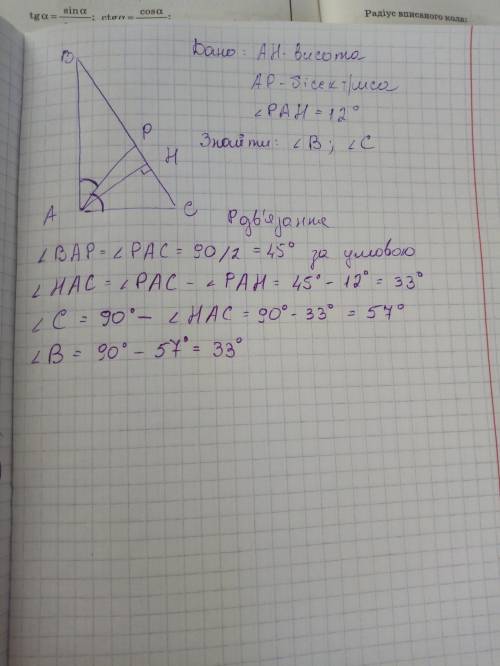 tgα = sinα / ; ctgα = cosα / ;
Радіус вписаного кола:
Дано: AH - висота
AP - бісектриса
∠PAH = 12°
Знайти: ∠B; ∠C
B
P
H
A
C
Розв'язання
∠BAP = ∠PAC = 90/2 = 45° за умовою
∠HAC = ∠PAC - ∠PAH = 45° - 12° = 33°
∠C = 90° - ∠HAC = 90° - 33° = 57°
∠B = 90° - 57° = 33°